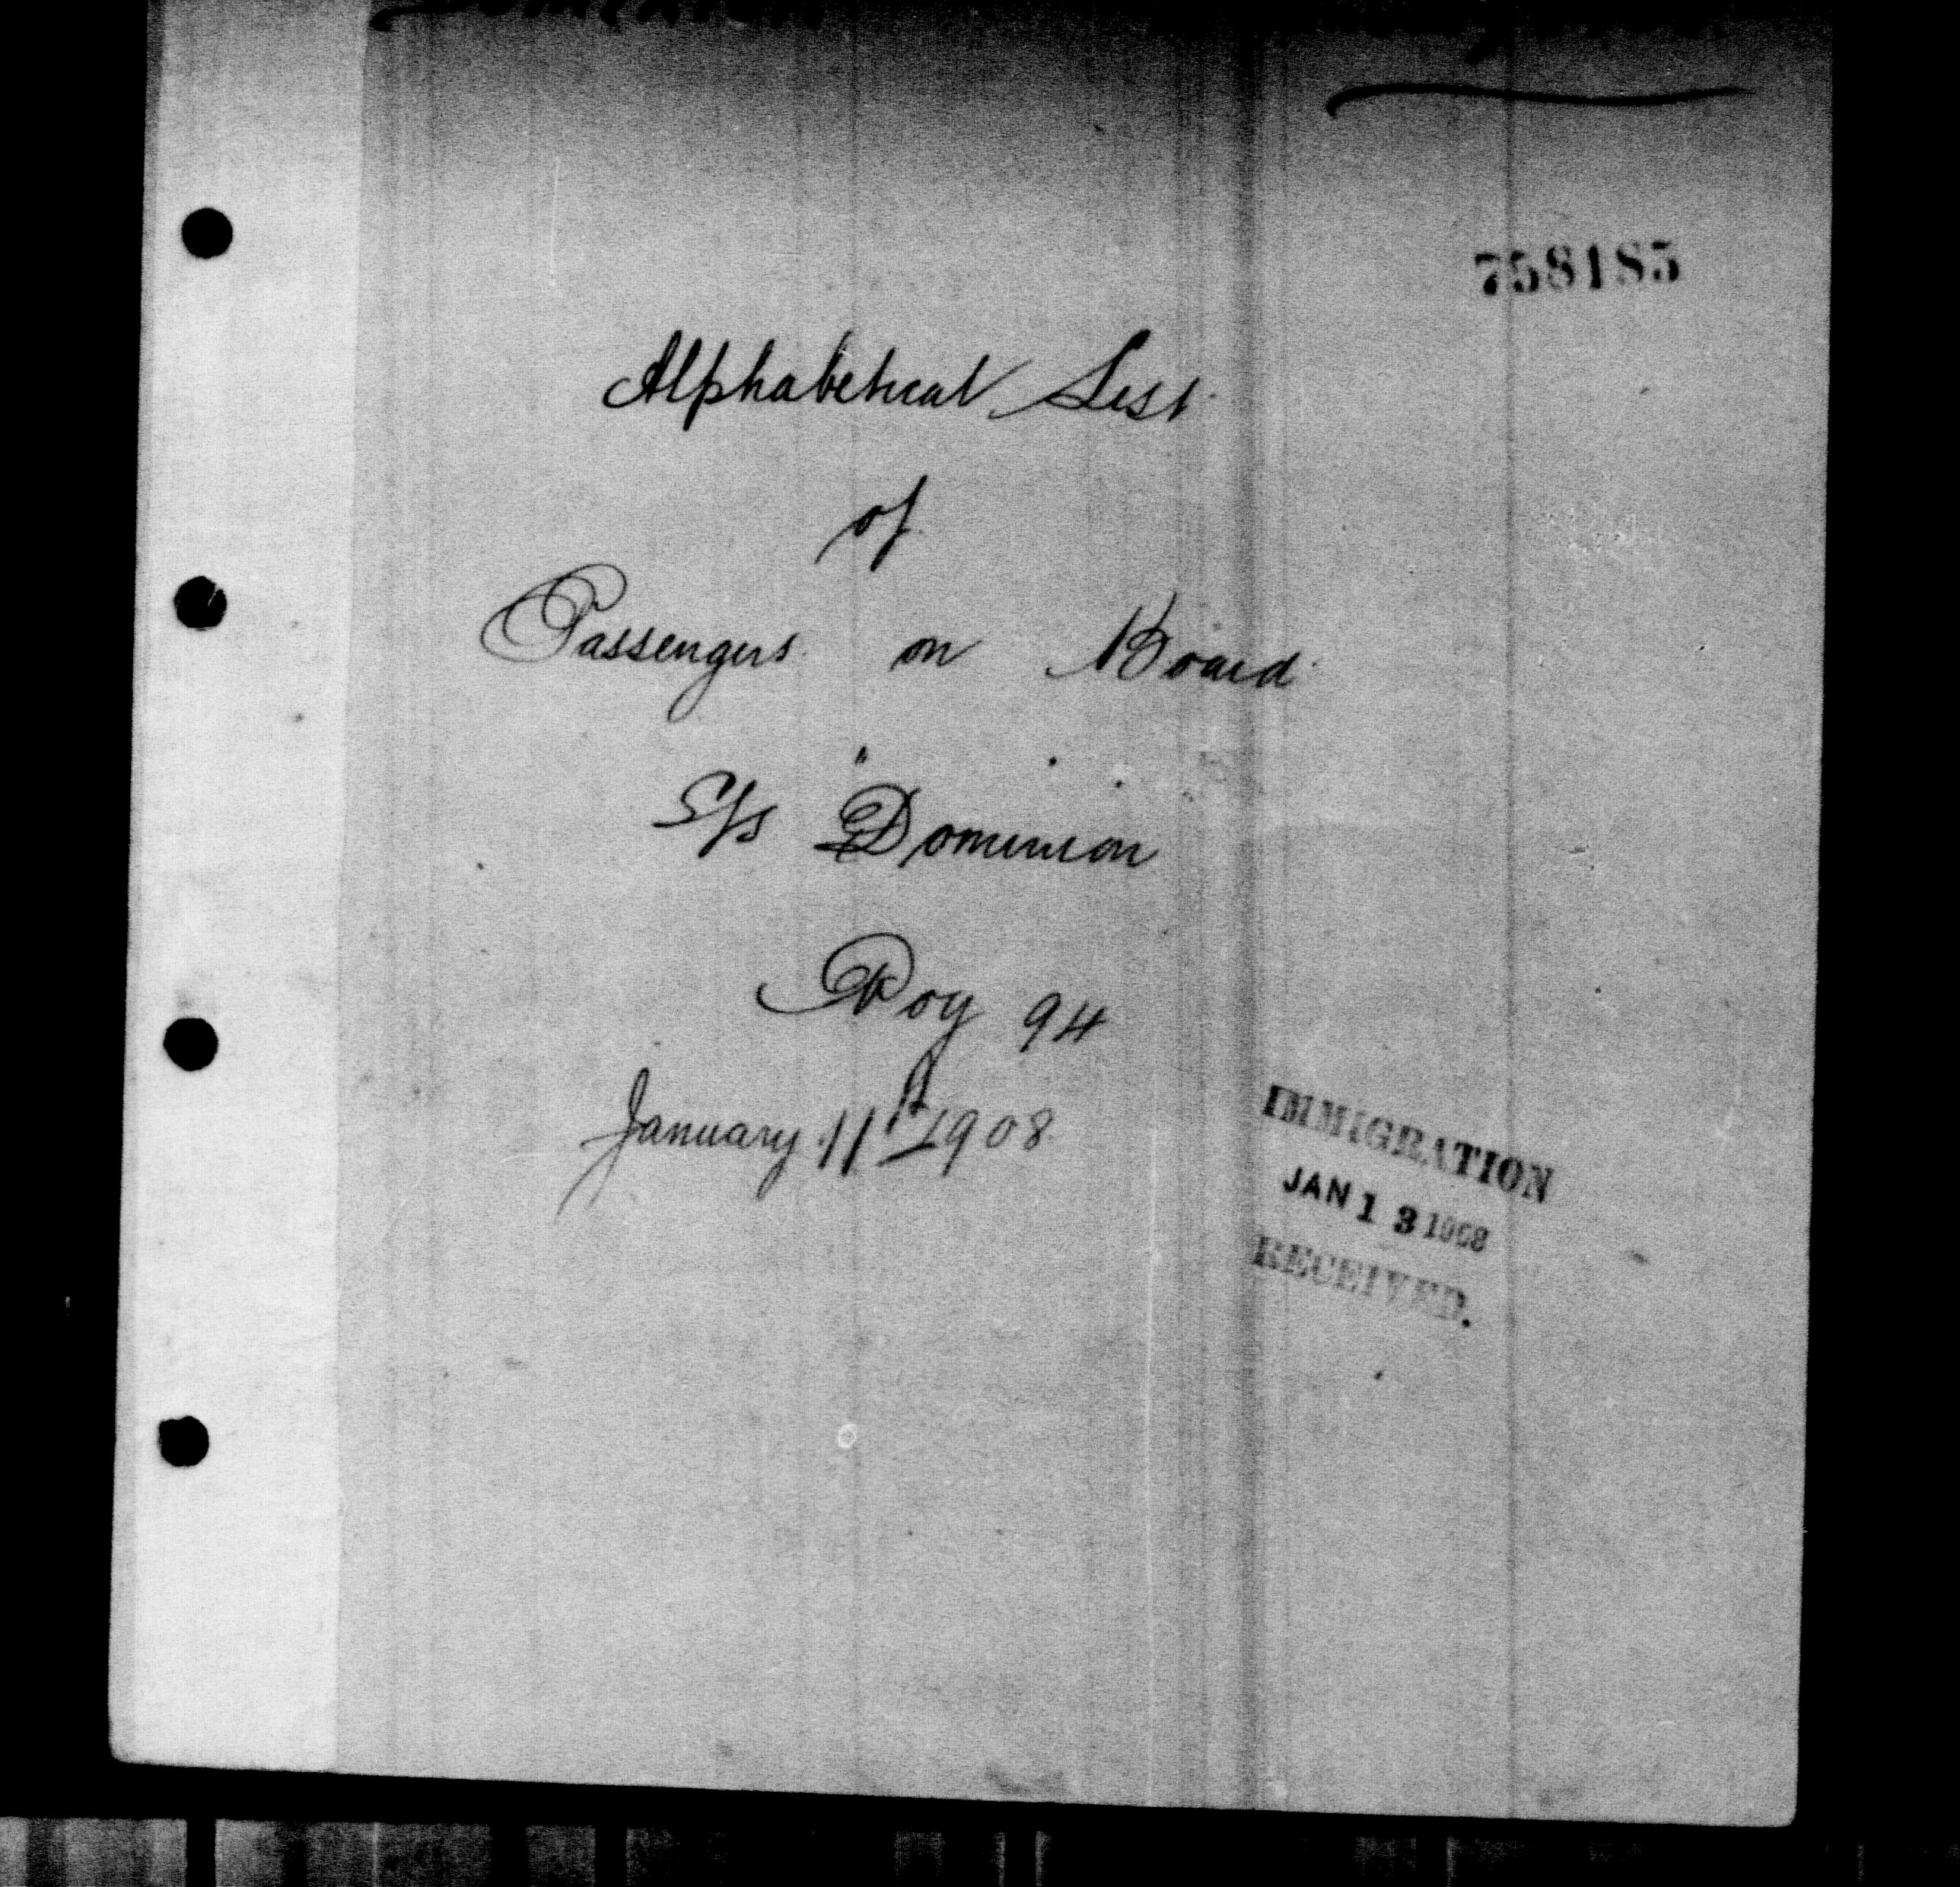 Dominion
758185
Alphabetical List
of
Passengers on Board
S/s "Dominion
Voy 94
January 11th 1908
IMMIGRATION
JAN 13 1908
RECEIVED.